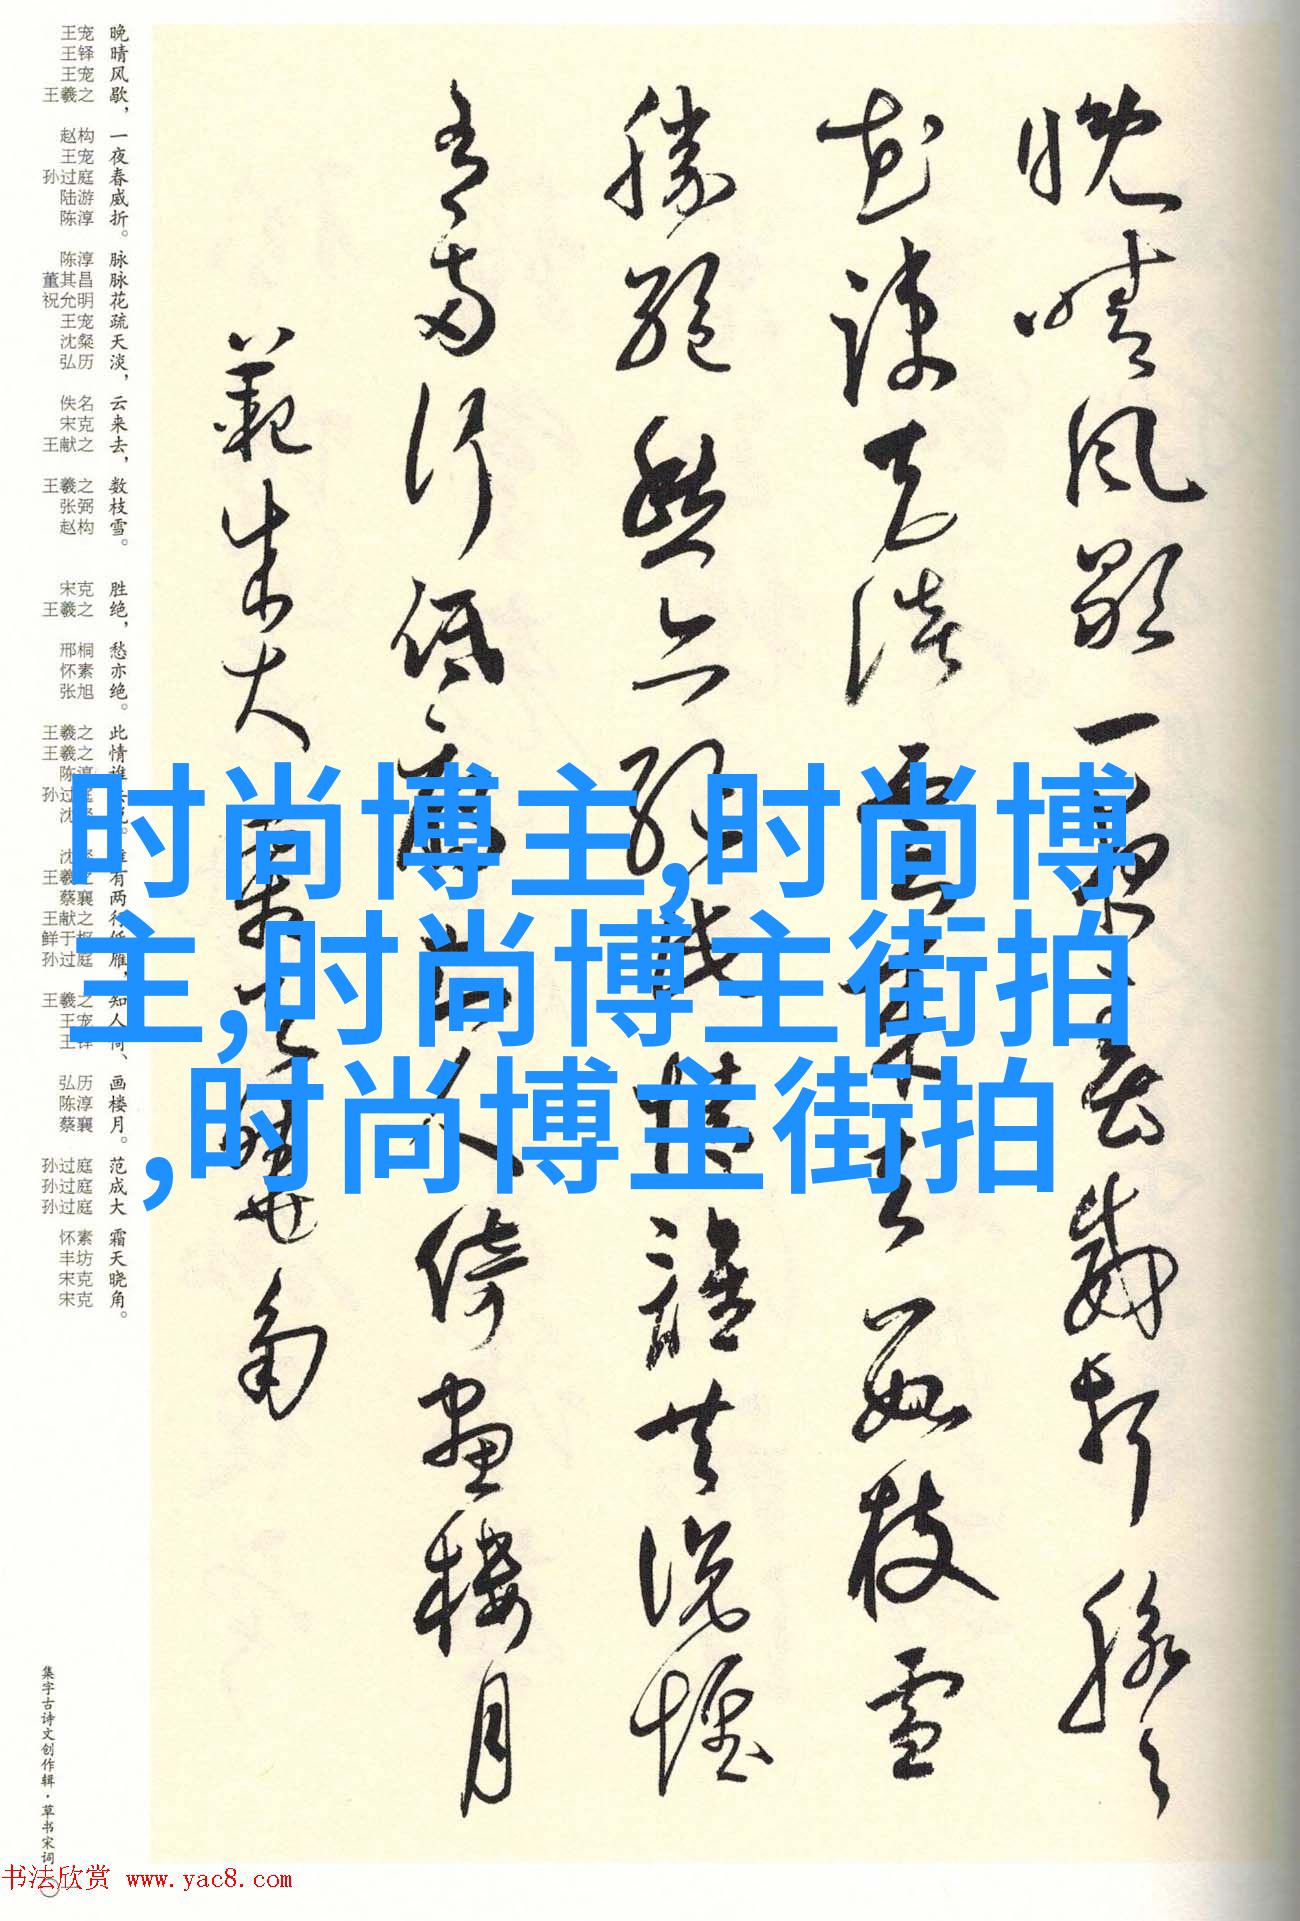 晚晴風歇一夜春威折脉々
花疎天淡雲来去數枝雪
勝絶愁亦絶此情誰共説惟
有兩行低雁知人倚畫樓月
範成大霜天曉角
晚晴风歇，一夜春威折。脉脉花疏天淡，云来去，数枝雪。胜绝，愁亦绝。此情谁共说。惟有两行低雁，知人倚、画楼月。范成大霜天晓角。
王宠 王铎 王宠 王羲之 赵构 王宠 孙过庭 陆游 陈淳 陈淳 董其昌 祝允明 王宠 沈粲 弘历 佚名 宋克 王献之 王羲之 张弼 赵构 宋克 王羲之 邢桐 怀素 张旭 王羲之 王羲之 陈淳 孙过庭 沈 沈 王羲之 蔡襄 王献之 鲜于枢 孙过庭 王羲之 王宠 王铎 弘历 陈淳 蔡襄 孙过庭 孙过庭 孙过庭 怀素 丰坊 宋克 宋克
集字古诗文创作辑·草书宋词
时尚博主,时尚博
主,时尚博主街拍
,时尚博主街拍
书法欣赏 www.yac8.com